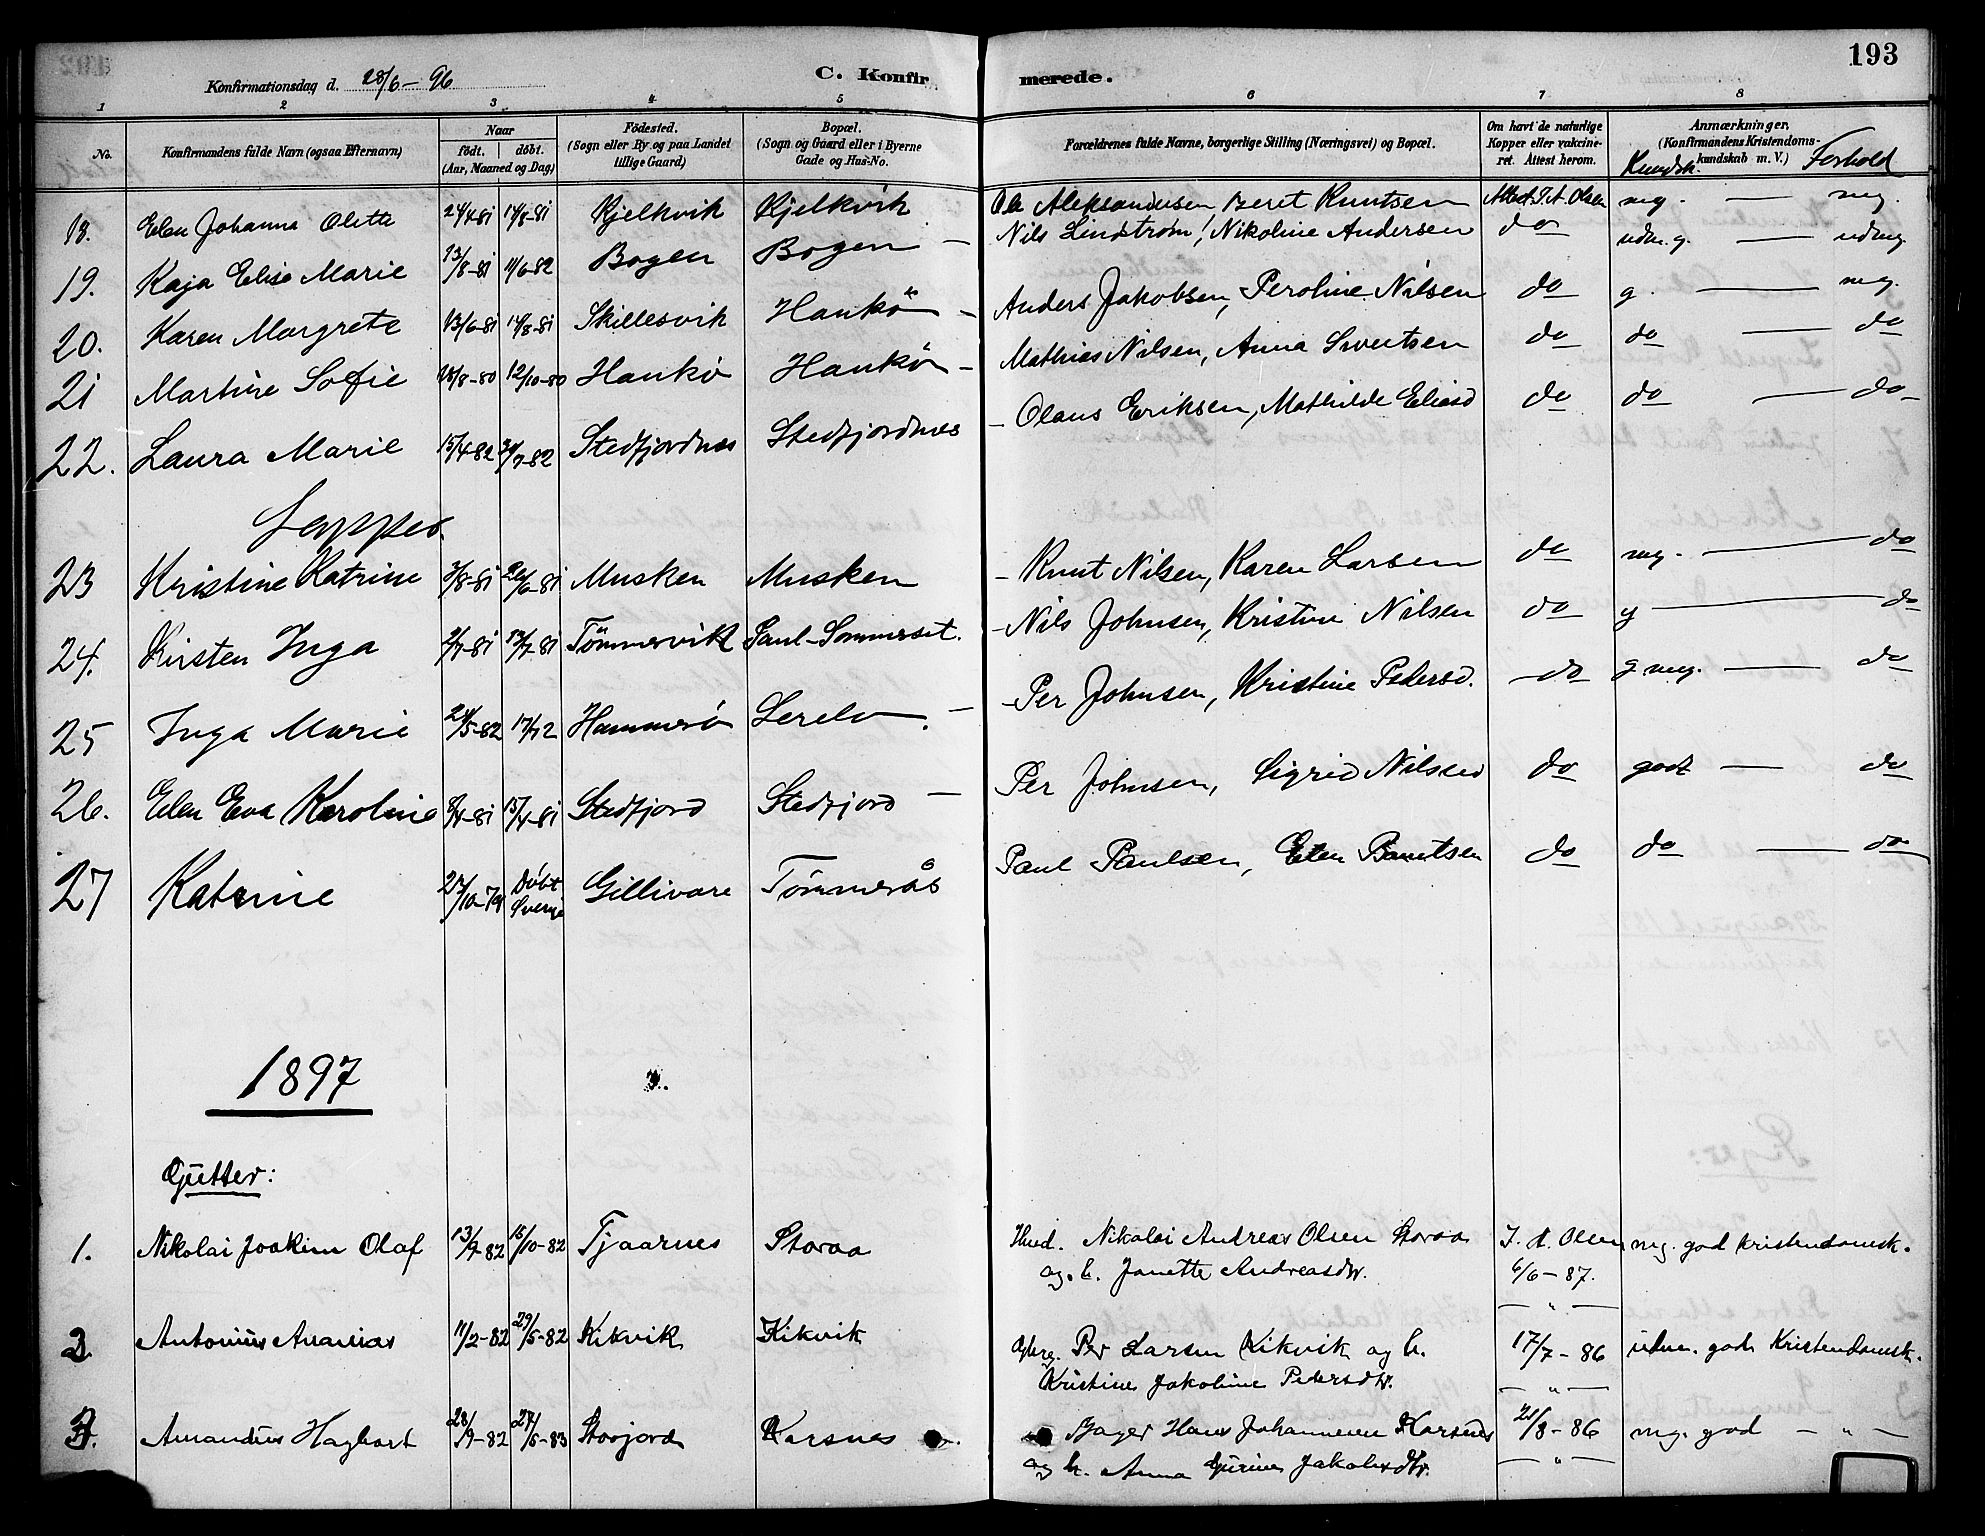 193
Konfirmationsdag d. 28/6-96
C. Konfirmerede.
1 2 3 4 5 6 7 8
No. Konfirmandens fulde Navn (ogsaa Efternavn) Naar født. døbt. (Aar, Maaned og Dag) Fødested. (Sogn eller By og paa Landet tillige Gaard) Bopæl. (Sogn og Gaard eller i Byerne Gade og Hus-No. Forældrenes fulde Navne, borgerlige Stilling (Næringsvei) og Bopæl. Om havt de naturlige Kopper eller vakcineret. Attest herom. Anmærkninger. (Konfirmandens Kristendomskundskab m. V.) Kundsk. Forhold
18. Elen Johanna Olette Kjelkvik Kjelkvik Ole Aleksandersen Beret Knutsen Attest J. A. Olsen mg. — mg.
19. Kaja Elise Marie 13/8-81 11/6-82 Bogen Bogen — Nils Lindstrøm, Nikoline Andersen do udm.g. — udmg.
20. Karen Margrete 13/6-81 14/8-81 Skillesvik Hankö — Anders Jakobsen, Peroline Nilsen do g. — mg.
21 Martine Sofie 18/8-80 12/10-80 Hankö Hankö — Mathias Nilsen, Anna Sivertsen do do — do
22. Laura Marie 15/4-82 Stedfjordnes Stedfjordnes — Olaus Eriksen, Mathilde Eliasd do do — do
Lapper
23 Kristine Katrine 3/8-81 Musken Musken — Knut Nilsen, Karen Larsen do mg. — do
24. Kirsten Inga 2/7-81 13/7-81 Tömmervik Saul-Sommerset. — Nils Johnsen, Kristine Nilsen do g — do
25 Inga Marie 24/5-82 Hammerö — Per Johnsen, Kristine Pedersd. do g mg. — do
26. Elen Eva Karoline 8/4-81 15/4-81 Stedfjord Stedfjord — Per Johnsen, Sigrid Nilssen do godt — do
27 Katrine 27/10-79 Döbt Sverige Gillivare Tømmerås Paul Paulsen, Elen do do — do
1897
Gutter:
1. Nikolai Joakim Olaf 13/7-82 15/10-82 Tjaarnes Storaa Husd. Nikolai Andreas Olsen Storaa J. A. Olsen mg. god Kristendomsk.
og h. Janette Andreasdtr. 6/6-87.
— " —
2. Antonius Ananias 11/2-82 29/5-82 Kikvik Kikvik Per Larsen Kikvik og h. 17/7-86 udm. god Kristendomsk.
Kristine Jakobine Pedersdtr. — " —
3. Amandus Hagbart 28/9-82 27/5-83 Storjord Korsnes Johannesen Korsnes 21/8-86 mg. god — " —
og h. Anna Gurine Jakobsdtr. — " —